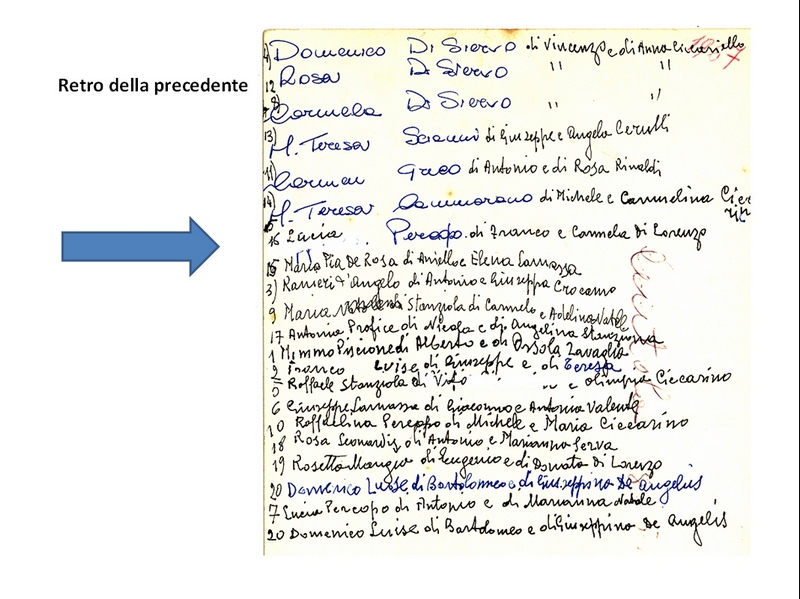 Retro della precedente
4) Domenico Di Siervo di Vincenzo e di Anna Ciccariello
12 Rosa Di Siervo " "
8) Carmela Di Siervo " "
13) M. Teresa di Giuseppe e Angela Cerulli
11) Carmen Greco di Antonio e di Rosa Rinaldi
14) M. Teresa Cammarano di Michele e Carmelina
16 Lucia Percopo di Franco e Carmela Di Lorenzo
15 Maria Pia De Rosa di Aniello e Elena Lamassa
3) Ranieri d'Angelo di Antonio e Giuseppa Crocamo
9 Maria Stanziola di Carmelo e Adelina Natale
17 Antonio Profice di Nicola e di Angelina Stanziona
1 Mimmo Piscione di Alberto e di Zavaglia
2 Franco Luise di Giuseppe e di Teresa
5 Raffaele Stanziola di Vito e Olimpia Ciccarino
6 Giuseppe Lamassa di Giacomo e Antonia Valente
10 Raffaelina Percopo di Michele e Maria Ciccarino
18 Rosa Leonardis di Antonio e Marianna Serva
19 Rosetta Mangia di Eugenio e di Donata Di Lorenzo
20 Domenico Luise di Bartolomeo e di Giuseppina De Angelis
7 Lucia Percopo di Antonio e di Marianna Natale
20 Domenico Luise di Bartolomeo e di Giuseppina De Angelis